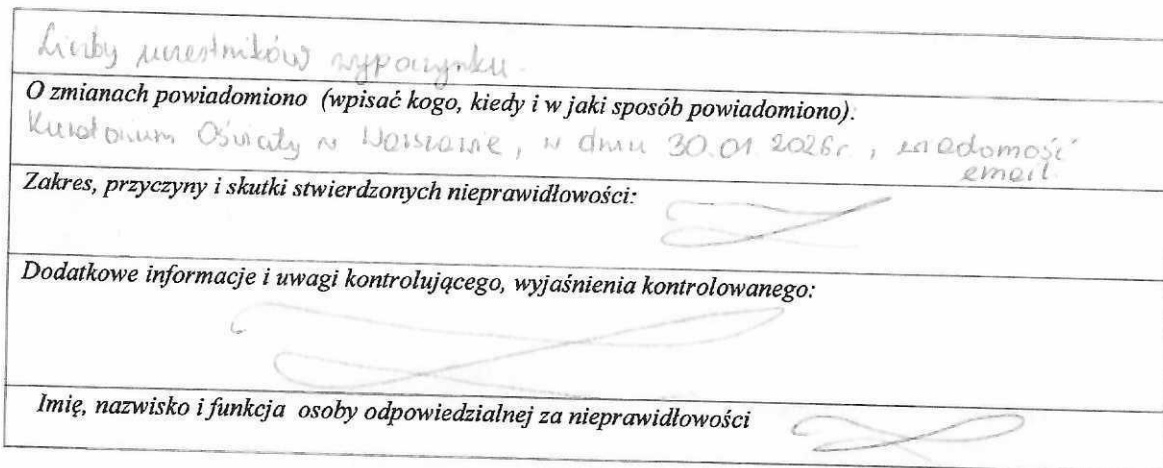 Liczby uczestników wypoczynku.
O zmianach powiadomiono (wpisać kogo, kiedy i w jaki sposób powiadomiono):
Kuratorium Oświaty w Warszawie, w dniu 30.01 2026r., wiadomość
email.
Zakres, przyczyny i skutki stwierdzonych nieprawidłowości:
Dodatkowe informacje i uwagi kontrolującego, wyjaśnienia kontrolowanego:
Imię, nazwisko i funkcja osoby odpowiedzialnej za nieprawidłowości